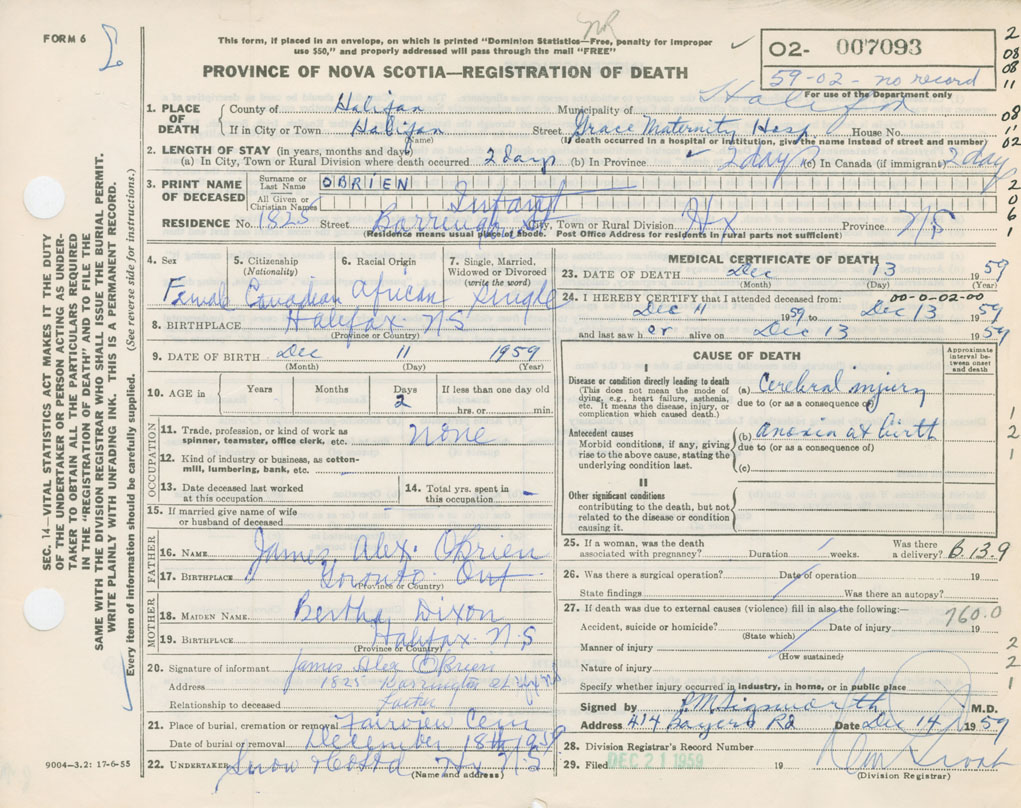 FORM 6
NR
This form, if placed in an envelope, on which is printed "Dominion Statistics—Free, penalty for improper
use $50," and properly addressed will pass through the mail "FREE"
PROVINCE OF NOVA SCOTIA—REGISTRATION OF DEATH
O2- 007093
59-02- no record
For use of the Department only
1. PLACE OF DEATH
County of Halifax Municipality of Halifax
If in City or Town Halifax Street Grace Maternity Hosp House No.
(Name) (If death occurred in a hospital or institution, give the name instead of street and number)
2. LENGTH OF STAY (in years, months and days)
(a) In City, Town or Rural Division where death occurred 2 days (b) In Province 2 days (c) In Canada (if immigrant) 2 day
3. PRINT NAME OF DECEASED
Surname or Last Name OBRIEN
All Given or Christian Names Infant
RESIDENCE No. 1825 Street Barrington City, Town or Rural Division Hx Province N/S
(Residence means usual place of abode. Post Office Address for residents in rural parts not sufficient)
4. Sex 5. Citizenship (Nationality) 6. Racial Origin 7. Single, Married, Widowed or Divorced (write the word)
Female Canadian African Single
8. BIRTHPLACE Halifax NS
(Province or Country)
9. DATE OF BIRTH Dec 11 1959
(Month) (Day) (Year)
10. AGE in Years Months Days 2 If less than one day old
hrs. or min.
OCCUPATION
11. Trade, profession, or kind of work as
spinner, teamster, office clerk, etc. none
12. Kind of industry or business, as cotton-
mill, lumbering, bank, etc. -
13. Date deceased last worked
at this occupation
14. Total yrs. spent in
this occupation -
15. If married give name of wife
or husband of deceased -
FATHER
16. NAME James Alex. O'Brien
17. BIRTHPLACE Toronto Ont
(Province or Country)
MOTHER
18. MAIDEN NAME Bertha Dixon
19. BIRTHPLACE Halifax N.S
(Province or Country)
20. Signature of informant James Alex O'Brien
Address 1825 Barrington St Hfx NS
Relationship to deceased Father
21. Place of burial, cremation or removal Fairview Cem
Date of burial or removal December 18th 1959
22. UNDERTAKER Snow & Co Ltd Hx N.S
(Name and address)
9004—3.2: 17-6-55
MEDICAL CERTIFICATE OF DEATH
23. DATE OF DEATH Dec 13 1959
(Month) (Day) (Year)
00-0-02-00
24. I HEREBY CERTIFY that I attended deceased from:
Dec 11 1959 to Dec 13 1959
and last saw her alive on Dec 13 1959
CAUSE OF DEATH
Approximate interval between onset and death
I
Disease or condition directly leading to death
(This does not mean the mode of
dying, e.g., heart failure, asthenia,
etc. It means the disease, injury, or
complication which caused death.)
(a) Cerebral injury
due to (or as a consequence of)
Antecedent causes
Morbid conditions, if any, giving
rise to the above cause, stating the
underlying condition last.
(b) anoxia at birth
due to (or as a consequence of)
(c)
II
Other significant conditions
contributing to the death, but not
related to the disease or condition
causing it.
25. If a woman, was the death
associated with pregnancy? Duration weeks. Was there
a delivery? 6.13.9
26. Was there a surgical operation? Date of operation 19
State findings Was there an autopsy?
27. If death was due to external causes (violence) fill in also the following:—
760.0
Accident, suicide or homicide? Date of injury 19
(State which)
Manner of injury
(How sustained)
Nature of injury
Specify whether injury occurred in industry, in home, or in public place
Signed by M.D.
Address 414 Bayers Rd Date Dec 14 1959
28. Division Registrar's Record Number
29. Filed DEC 21 1959 19
(Division Registrar)
SEC. 14—VITAL STATISTICS ACT MAKES IT THE DUTY
OF THE UNDERTAKER OR PERSON ACTING AS UNDER-
TAKER TO OBTAIN ALL THE PARTICULARS REQUIRED
IN THE "REGISTRATION OF DEATH" AND TO FILE THE
SAME WITH THE DIVISION REGISTRAR WHO SHALL ISSUE THE BURIAL PERMIT.
WRITE PLAINLY WITH UNFADING INK. THIS IS A PERMANENT RECORD.
Every item of information should be carefully supplied. (See reverse side for instructions.)
2
08
08
11
08
11
02
2
0
6
1
1
2
1
2
2
1